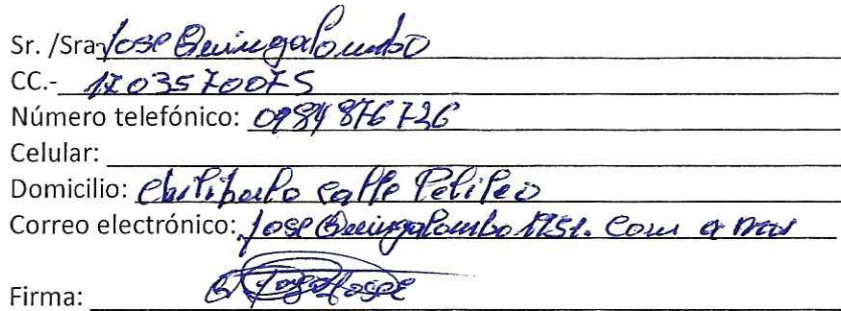 Sr. /Sra. Jose Quingalombo
CC.- 1703570075
Número telefónico: 0984 876 726
Celular:
Domicilio: Chilibulo calle Pelileo
Correo electrónico: Jose Quingalombo 1751. Com
Firma: